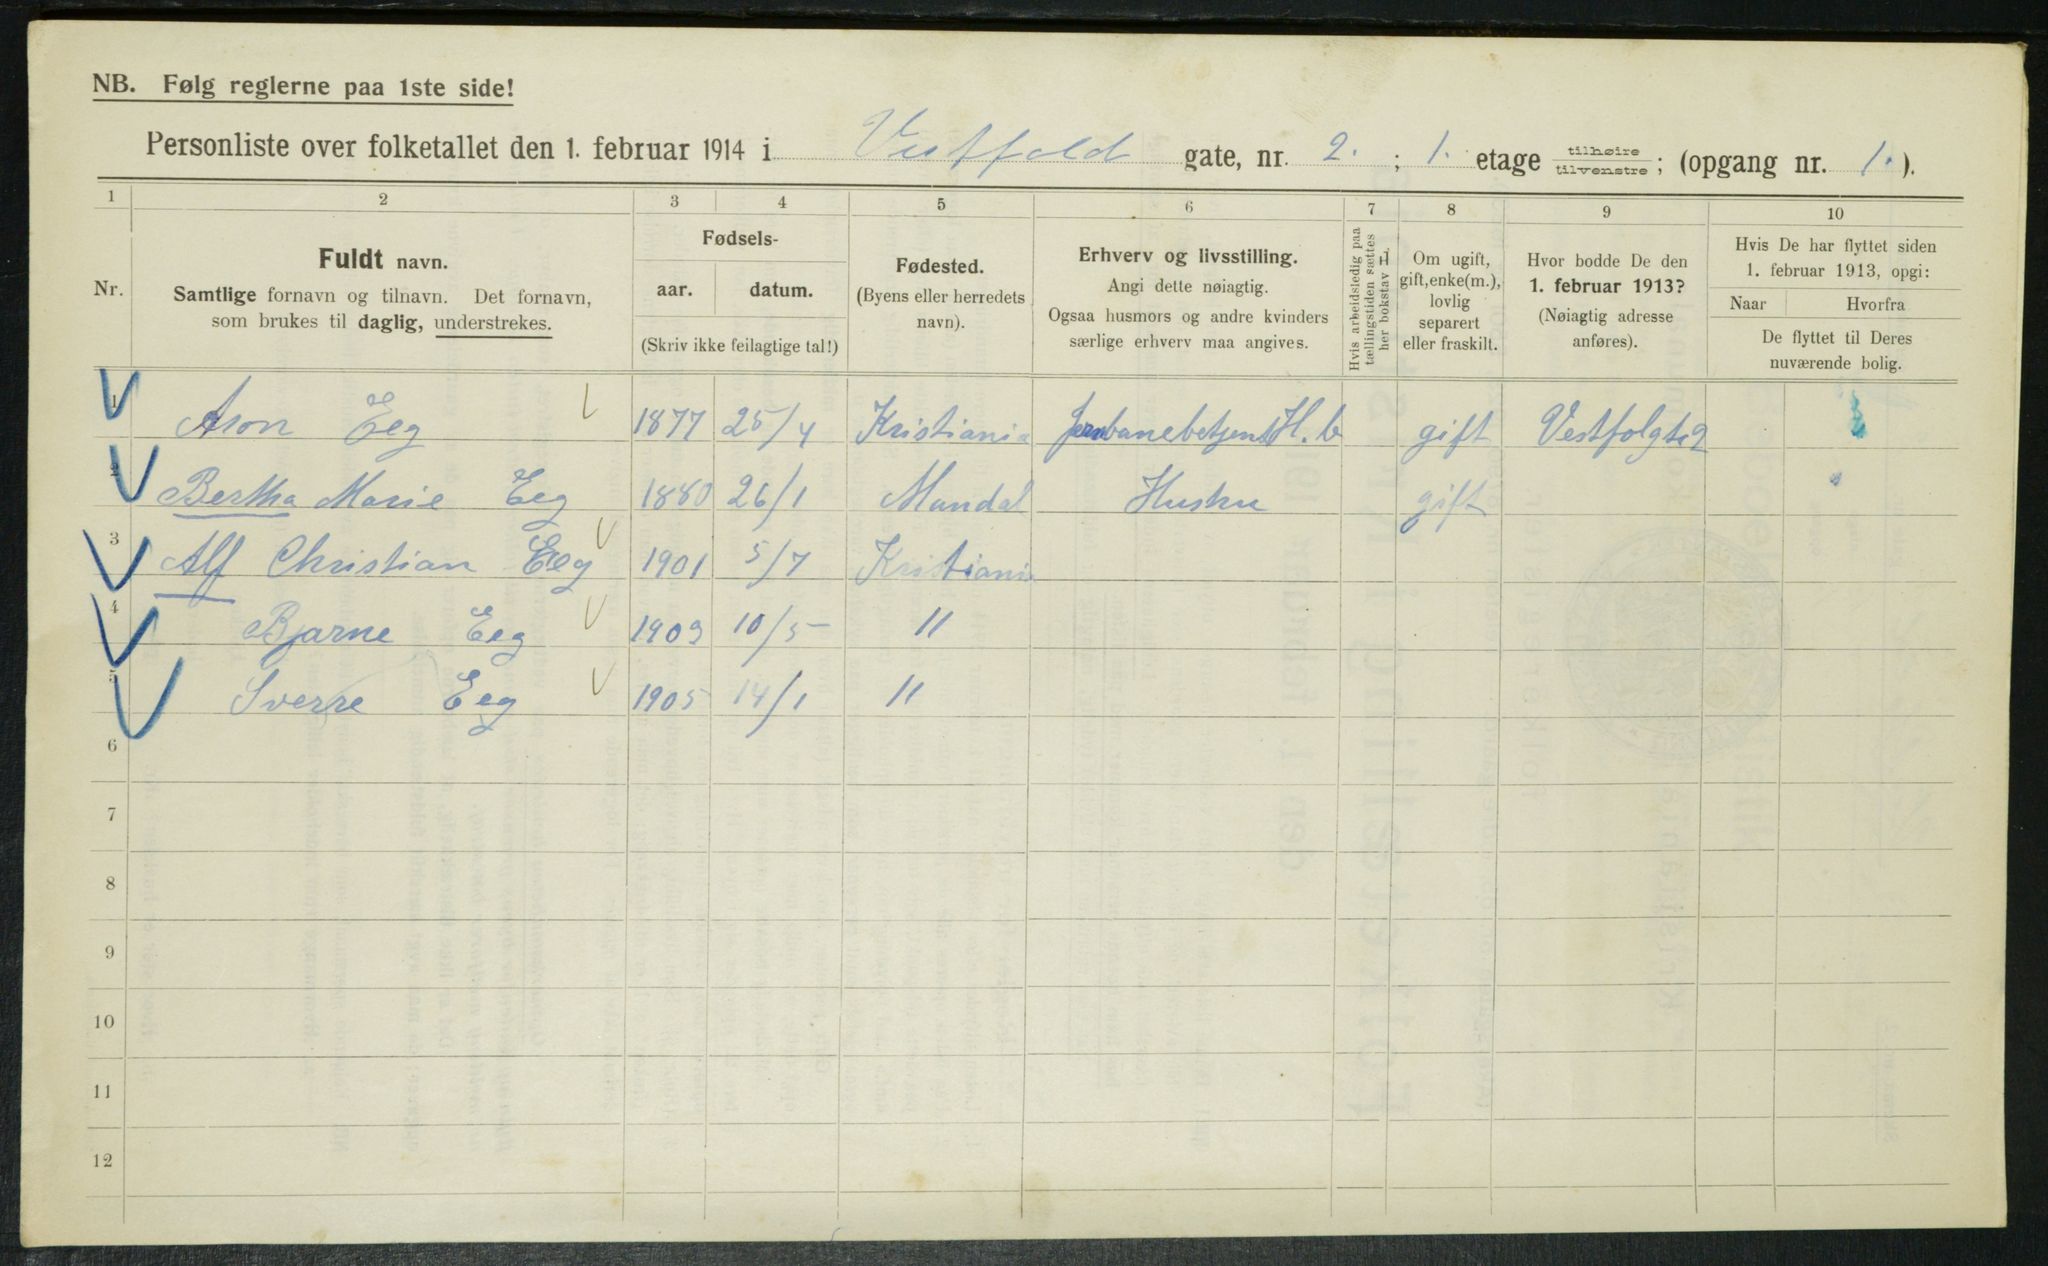 NB. Følg reglerne paa 1ste side!
Personliste over folketallet den 1. februar 1914 i Vestfold gate, nr. 2. ; 1. etage tilhøire tilvenstre ; (opgang nr. 1. ).
1 2 3 4 5 6 7 8 9 10
Nr.
Fuldt navn.
Samtlige fornavn og tilnavn. Det fornavn,
som brukes til daglig, understrekes.
Fødsels-
aar. datum.
(Skriv ikke feilagtige tal!)
Fødested.
(Byens eller herredets
navn).
Erhverv og livsstilling.
Angi dette nøiagtig.
Ogsaa husmors og andre kvinders
særlige erhverv maa angives.
Hvis arbeidsledig paa
tællingstiden sættes
her bokstav L.
Om ugift,
gift, enke(m.),
lovlig
separert
eller fraskilt.
Hvor bodde De den
1. februar 1913?
(Nøiagtig adresse
anføres).
Hvis De har flyttet siden
1. februar 1913, opgi:
Naar Hvorfra
De flyttet til Deres
nuværende bolig.
1 Aron Eeg 1877 25/4 Kristiania Jernbanebetjent H. b gift Vestfolgt 2
2 Bertha Marie Eeg 1880 26/1 Mandal Hustru gift
3 Alf Christian Eeg 1901 5/7 Kristiania
4 Bjarne Eeg 1903 10/5 "
5 Sverre Eeg 1905 14/1 "
6
7
8
9
10
11
12